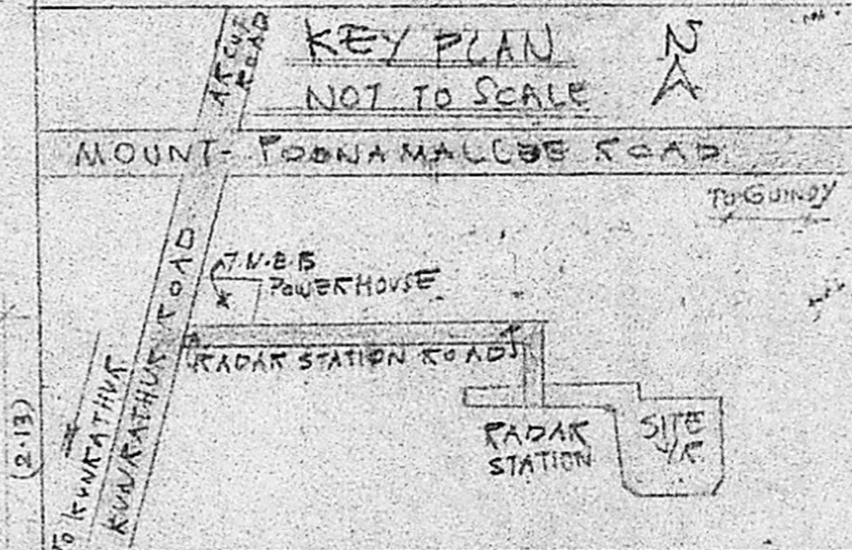 ARCOT
ROAD
KEY PLAN
NOT TO SCALE
N
MOUNT-POONAMALLEE ROAD
TO GUINDY
T.N.E.B
POWER HOUSE
RADAR STATION ROAD
KUNRATHUR ROAD
TO KUNRATHUR
RADAR
STATION
SITE
U/R
(2.13)